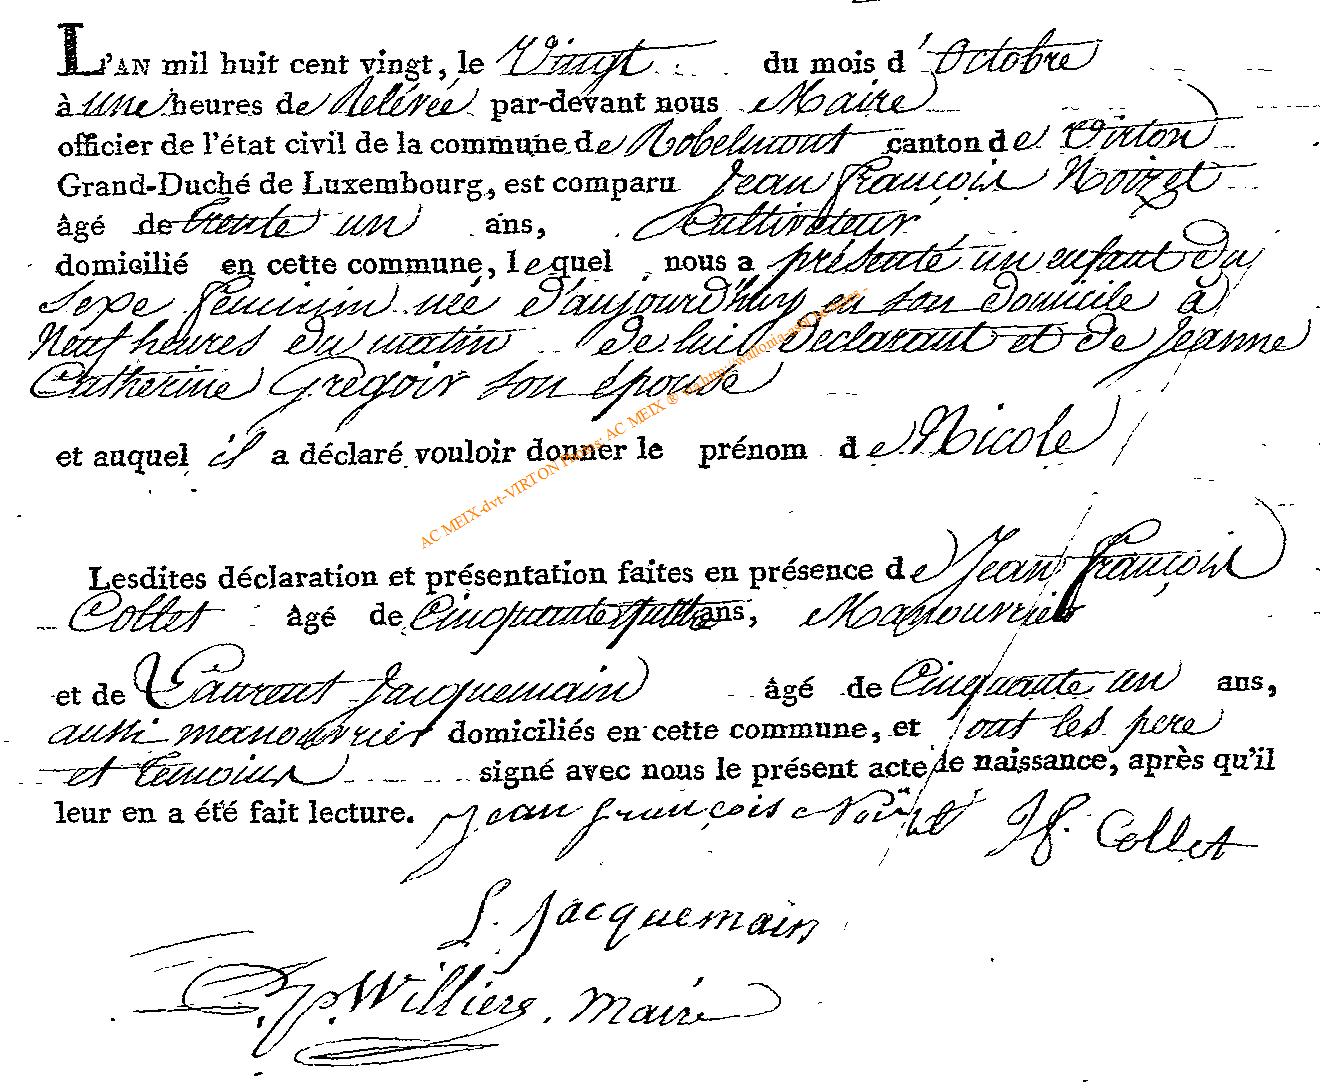 L'AN mil huit cent vingt, le Vingt du mois d'Octobre
à une heures de Relévée par-devant nous Maire
officier de l'état civil de la commune de Robelmont canton de Virton
Grand-Duché de Luxembourg, est comparu Jean françois Noizet
âgé de trente un ans, Cultivateur
domicilié en cette commune, lequel nous a présenté un enfant du
Sexe feminin née d'aujourd'huy en son domicile à
Neuf heures du matin de lui declarant et de Jeanne
Catherine Gregoir son épouse
et auquel il a déclaré vouloir donner le prénom de Nicole
AC MEIX-dvt-VIRTON AC MEIX ® http://wallonia-asbl
Lesdites déclaration et présentation faites en présence de Jean françois
Collet âgé de Cinquante ans, Manouvrier
et de Laurent Jacquemain âgé de Cinquante un ans,
aussi manouvrier domiciliés en cette commune, et ont les pere
et temoins signé avec nous le présent acte de naissance, après qu'il
leur en a été fait lecture. Jean françois Noizet Jf. Collet
L. Jacquemain
P. Williers. Maire